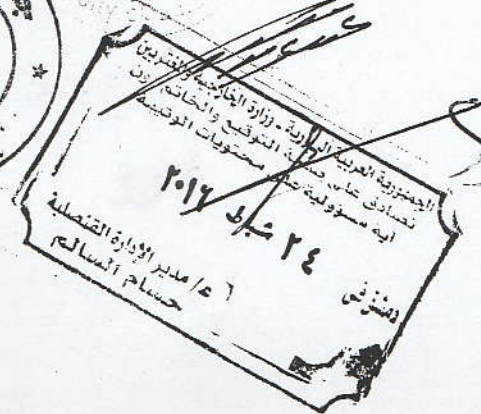 الجمهورية العربية السورية - وزارة الخارجية والمغتربين
نصادق على صحة التوقيع والخاتم دون
أية مسؤولية على محتويات الوثيقة
دمشق في ٢٤ شباط ٢٠١٦
٦ ع/ مدير الإدارة القنصلية
حسام السالم